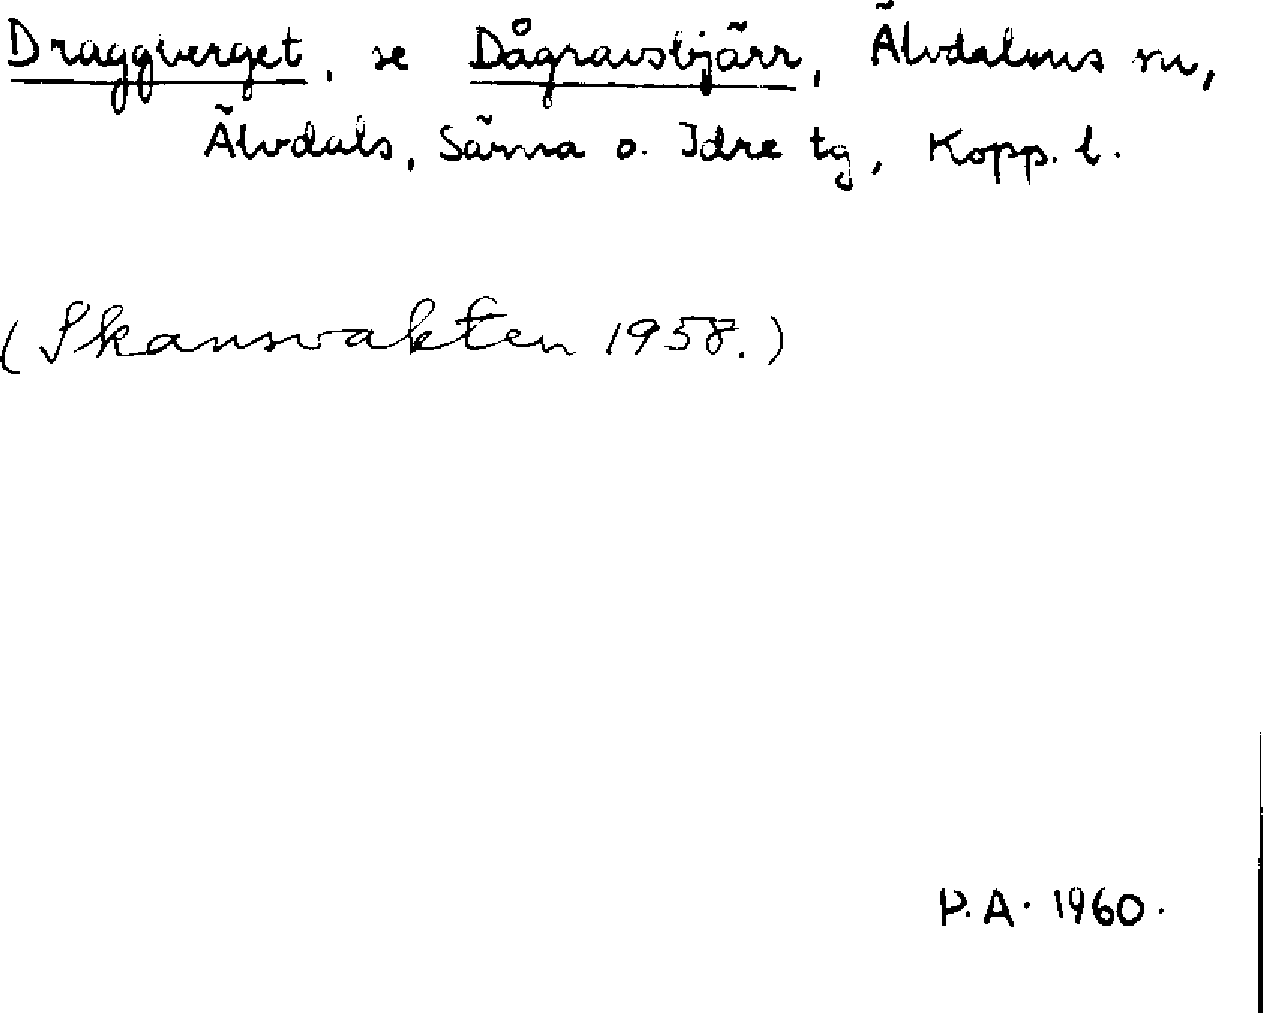 Draggberget, se Dågravsbjärr, Älvdalens sn,
Älvdals, Särna o. Idre tg, Kopp. l.
(Skansvakten 1958.)
P.A. 1960.